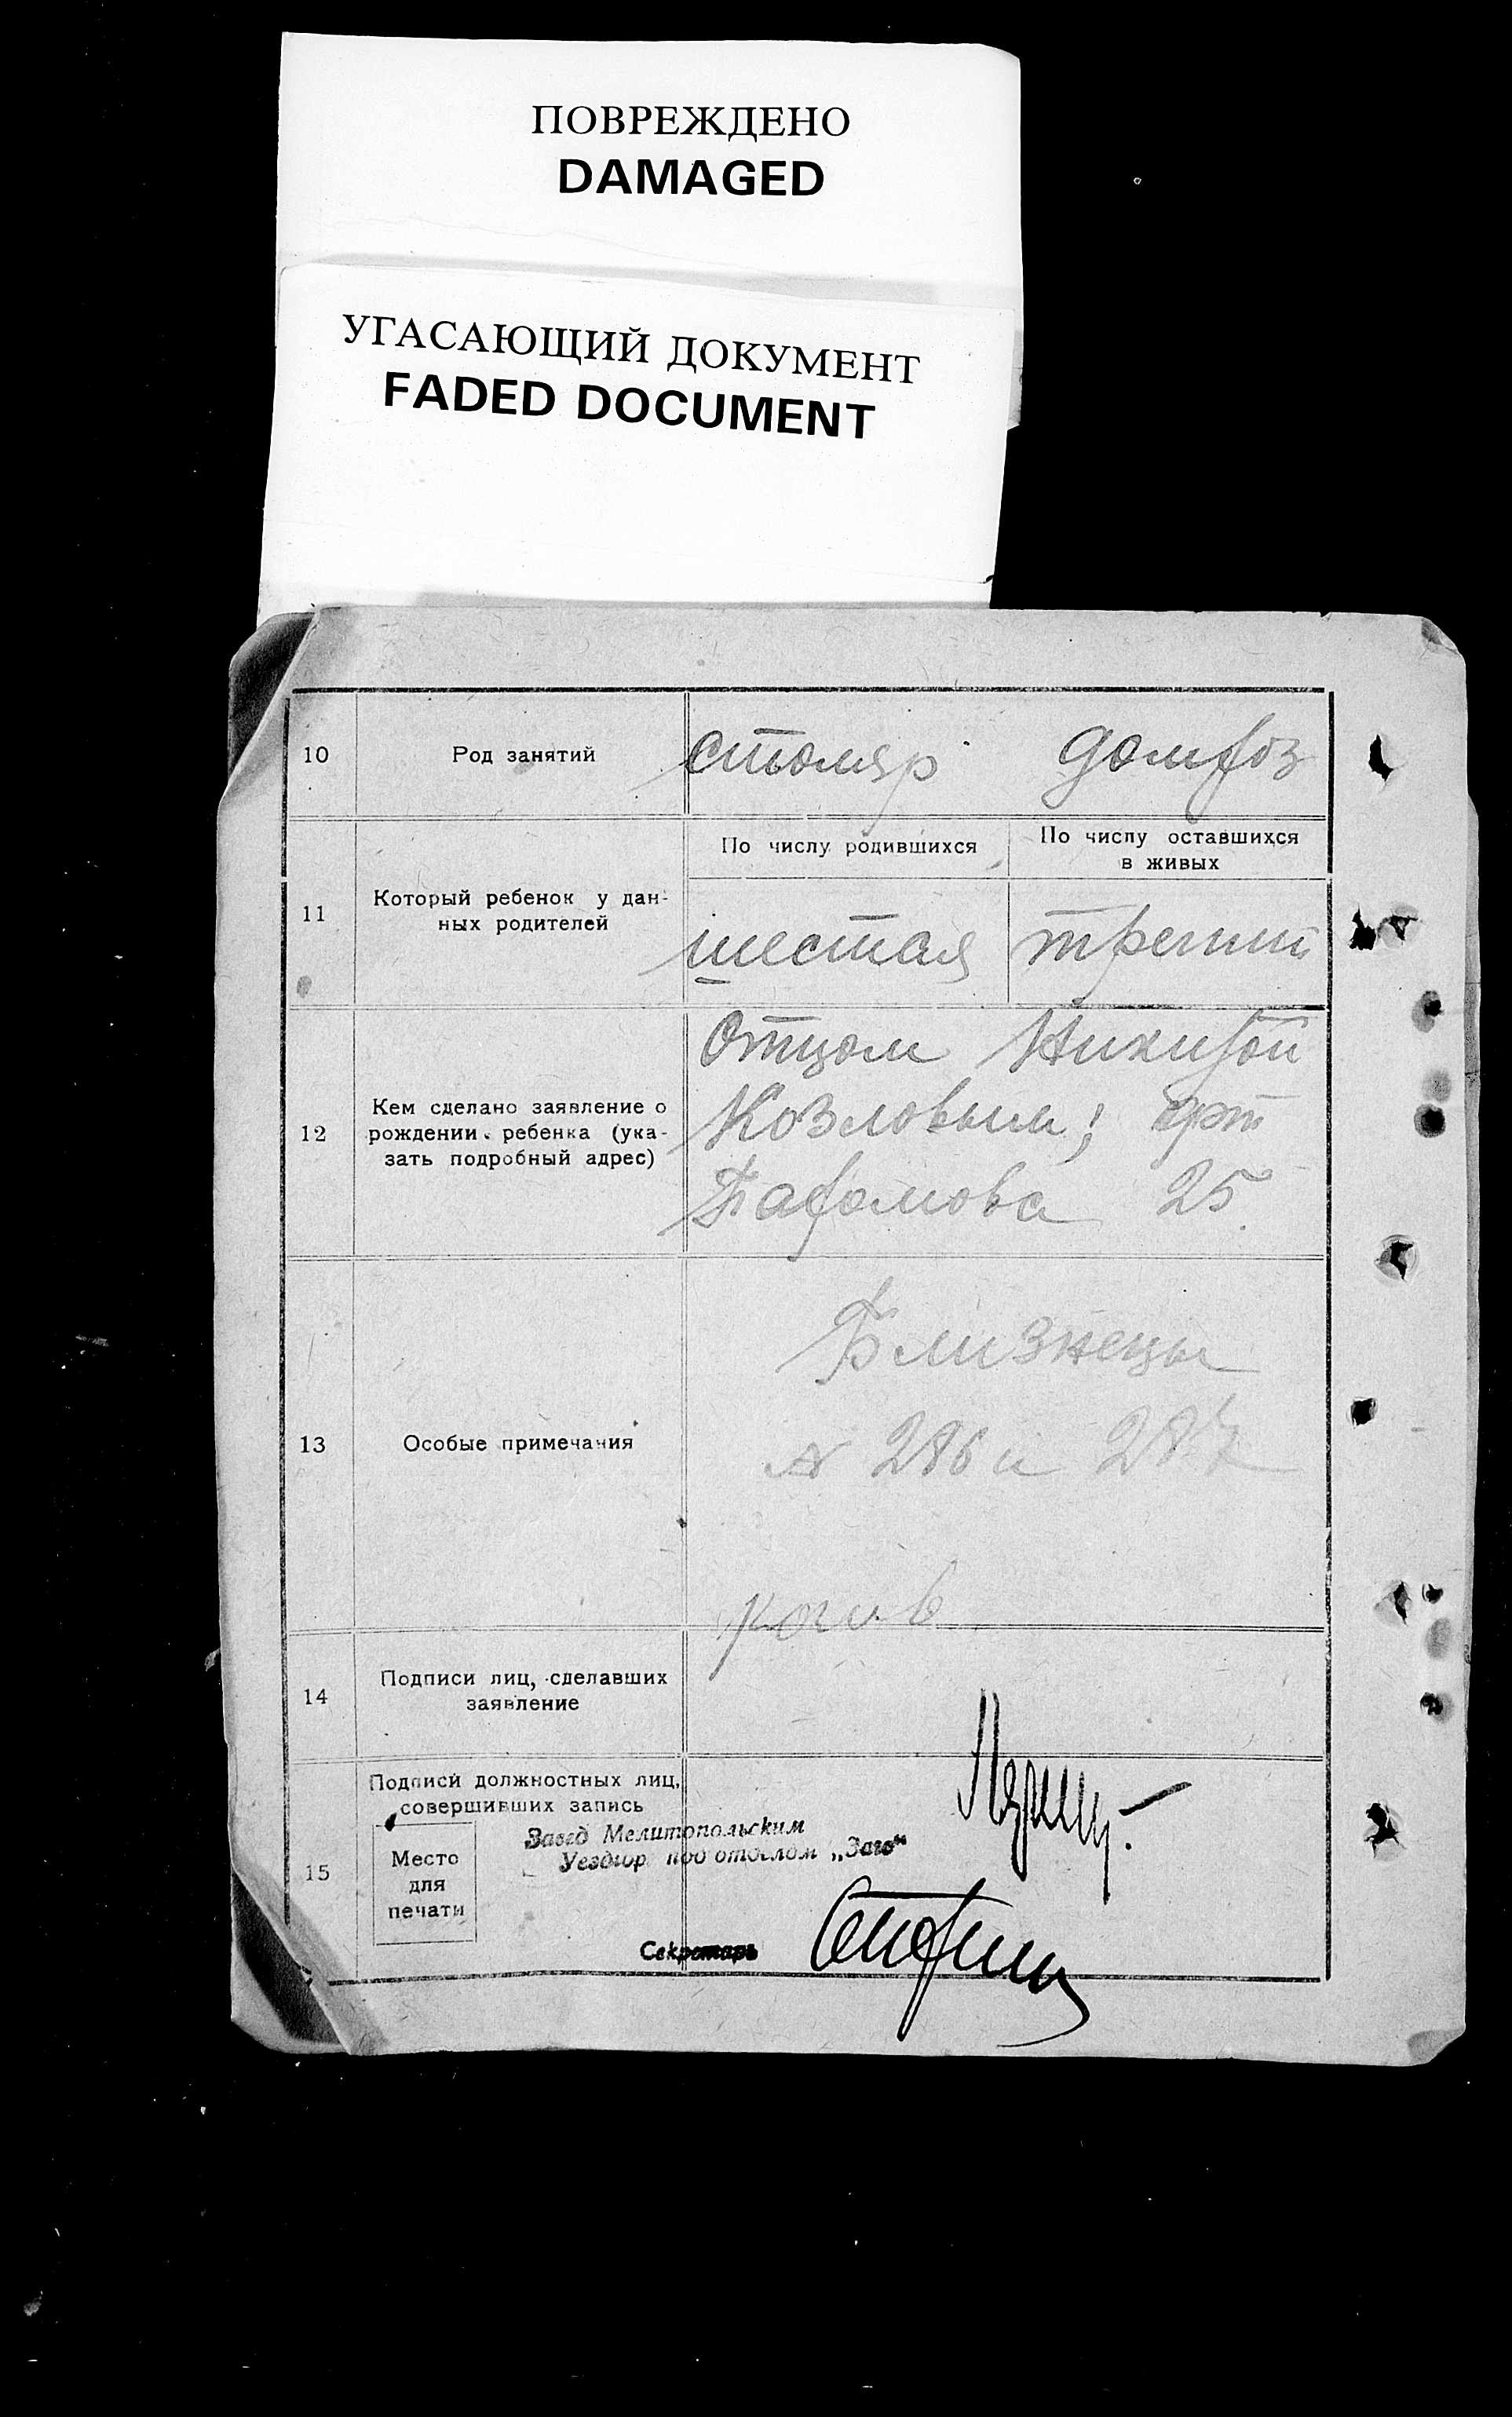 ПОВРЕЖДЕНО
DAMAGED
УГАСАЮЩИЙ ДОКУМЕНТ
FADED DOCUMENT
10 Род занятий столяр домхоз
По числу родившихся По числу оставшихся
в живых
11 Который ребенок у дан-
ных родителей
шестая третий
12 Кем сделано заявление о
рождении ребенка (ука-
зать подробный адрес)
Отцом Никитой
Козловым;
25
13 Особые примечания
Близнецы
№ 286 и 287
14 Подписи лиц, сделавших
заявление
15 Подписи должностных лиц,
совершивших запись
Место
для
печати
Завед Мелитопольским
Уездгор подотделом „Загс“
Секретарь